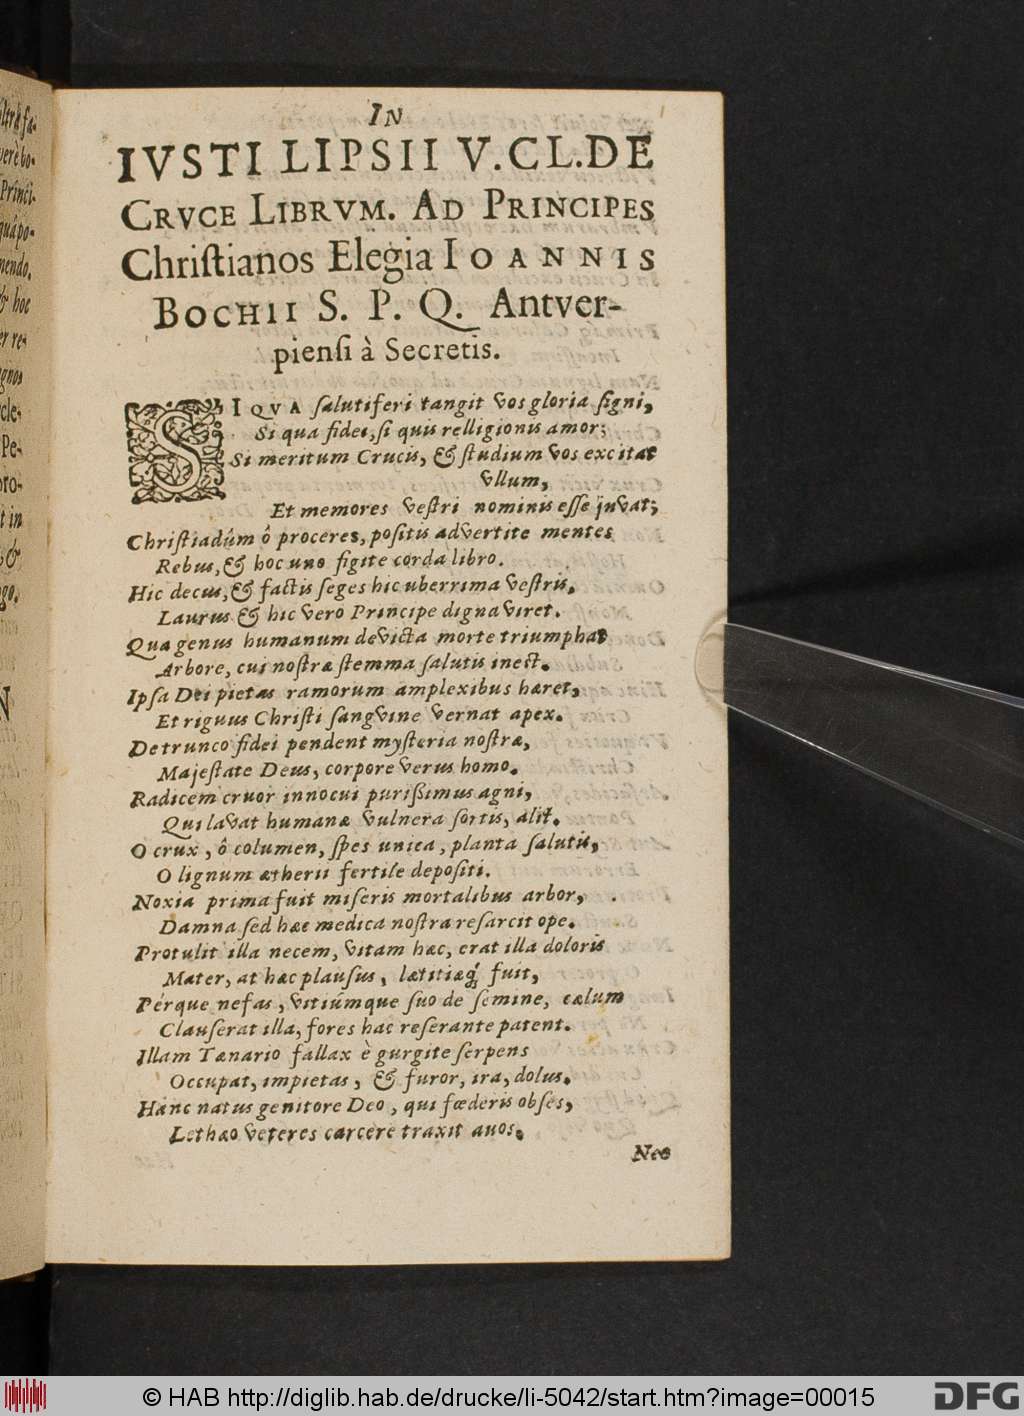 IN
IVSTI LIPSII V. CL. DE
CRVCE LIBRVM. AD PRINCIPES
Christianos Elegia IOANNIS
BOCHII S. P. Q. Antver-
piensi à Secretis.
SI QVA salutiferi tangit vos gloria signi,
Si qua fides, si quis relligionis amor;
Si meritum Crucis, & studium vos excitat
vllum,
Et memores vestri nominis esse juvat;
Christiadúm ô proceres, positis advertite mentes
Rebus, & hoc uno figite corda libro.
Hic decus, & factis seges hic uberrima vestris,
Laurus & hic vero Principe digna viret.
Qua genus humanum devicta morte triumphat
Arbore, cui nostræ stemma salutis inest.
Ipsa Dei pietas ramorum amplexibus hæret,
Et riguus Christi sangvine vernat apex.
De trunco fidei pendent mysteria nostræ,
Majestate Deus, corpore verus homo.
Radicem cruor innocui purißimus agni,
Qui lavat humanæ vulnera sortis, alit.
O crux, ô columen, spes unica, planta salutis,
O lignum ætherii fertile depositi.
Noxia prima fuit miseris mortalibus arbor,
Damna sed hæc medica nostra resarcit ope.
Protulit illa necem, vitam hæc, erat illa doloris
Mater, at hæc plausus, lætitiæq́; fuit,
Pérque nefas, vitiúmque suo de semine, cælum
Clauserat illa, fores hac reserante patent.
Illam Tænario fallax è gurgite serpens
Occupat, impietas, & furor, ira, dolus.
Hanc natus genitore Deo, qui fœderis obses,
Lethæo veteres carcere traxit avos.
Nec
© HAB http://diglib.hab.de/drucke/li-5042/start.htm?image=00015
DFG